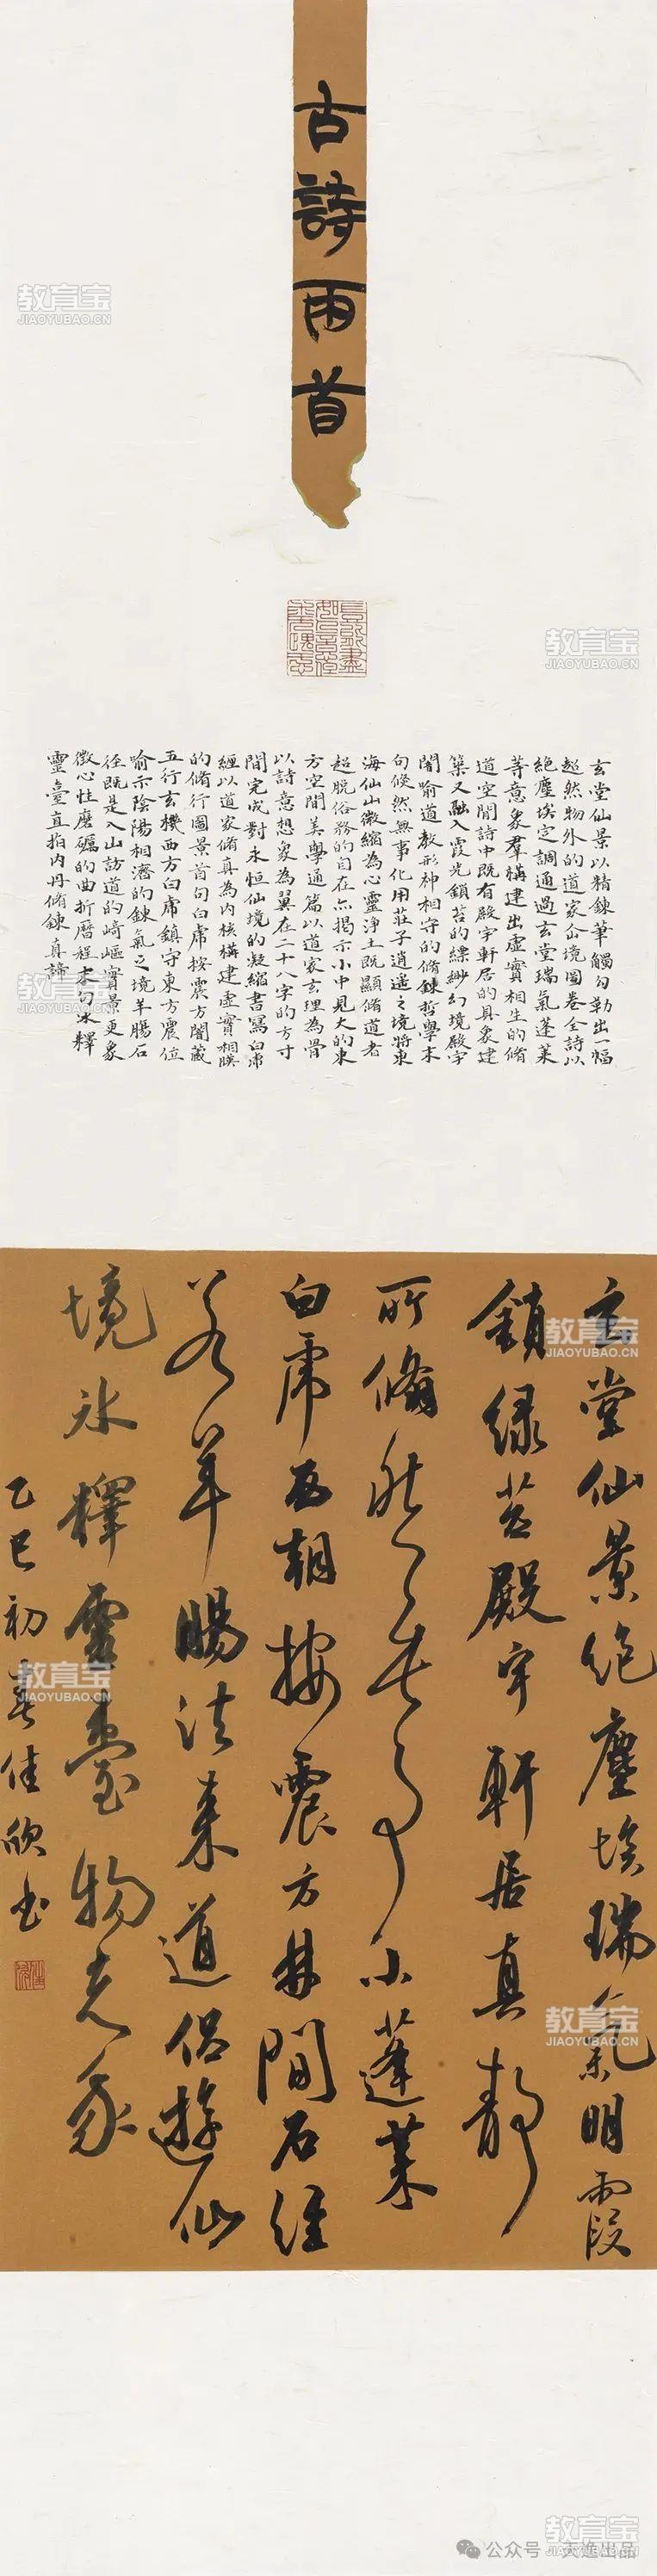 古詩兩首
玄堂仙景以精鍊筆觸勾勒出一幅
超然物外的道家仚境圖卷全詩以
絕塵埃定調通過玄堂瑞氣蓬萊
等意象羣構建出虛實相生的脩
道空間詩中既有殿宇軒居的具象建
築又融入霞光鎖苔的縹緲幻境殿宇
闇喻道教形神相守的脩鍊哲學末
句倏然無事化用莊子逍遙之境將東
海仙山微縮為心靈淨土既顯脩道者
超脫俗務的自在亦揭示小中見大的東
方空間美學通篇以道家玄理為骨
以詩意想象為翼在二十八字的方寸
間完成對永恒仙境的凝縮書寫白虎
經以道家脩真為内核構建虛實相
的脩行圖景首句白虎按震方闇藏
五行玄機西方白虎鎮守東方震位
喻示陰陽相濟的鍊氣之境羊腸石
徑既是入山訪道的崎嶇實景更象
徵心性磨礪的曲折曆程末句冰釋
靈臺直指内丹脩鍊真諦
玄堂仙景絕塵埃瑞氣明霞
鎖绿苔殿宇軒居真靜
所脩然無事小蓬萊
白虎西朝按震方林間石徑
若羊腸法来道侣遊仙
境冰釋靈臺物我
乙巳初春佳欣书
教育宝
JIAOYUBAO.CN
教育宝
JIAOYUBAO.CN
教育宝
JIAOYUBAO.CN
教育宝
JIAOYUBAO.CN
教育宝
JIAOYUBAO.CN
教育宝
JIAOYUBAO.CN
教育宝
JIAOYUBAO.CN
公众号·天逸出品